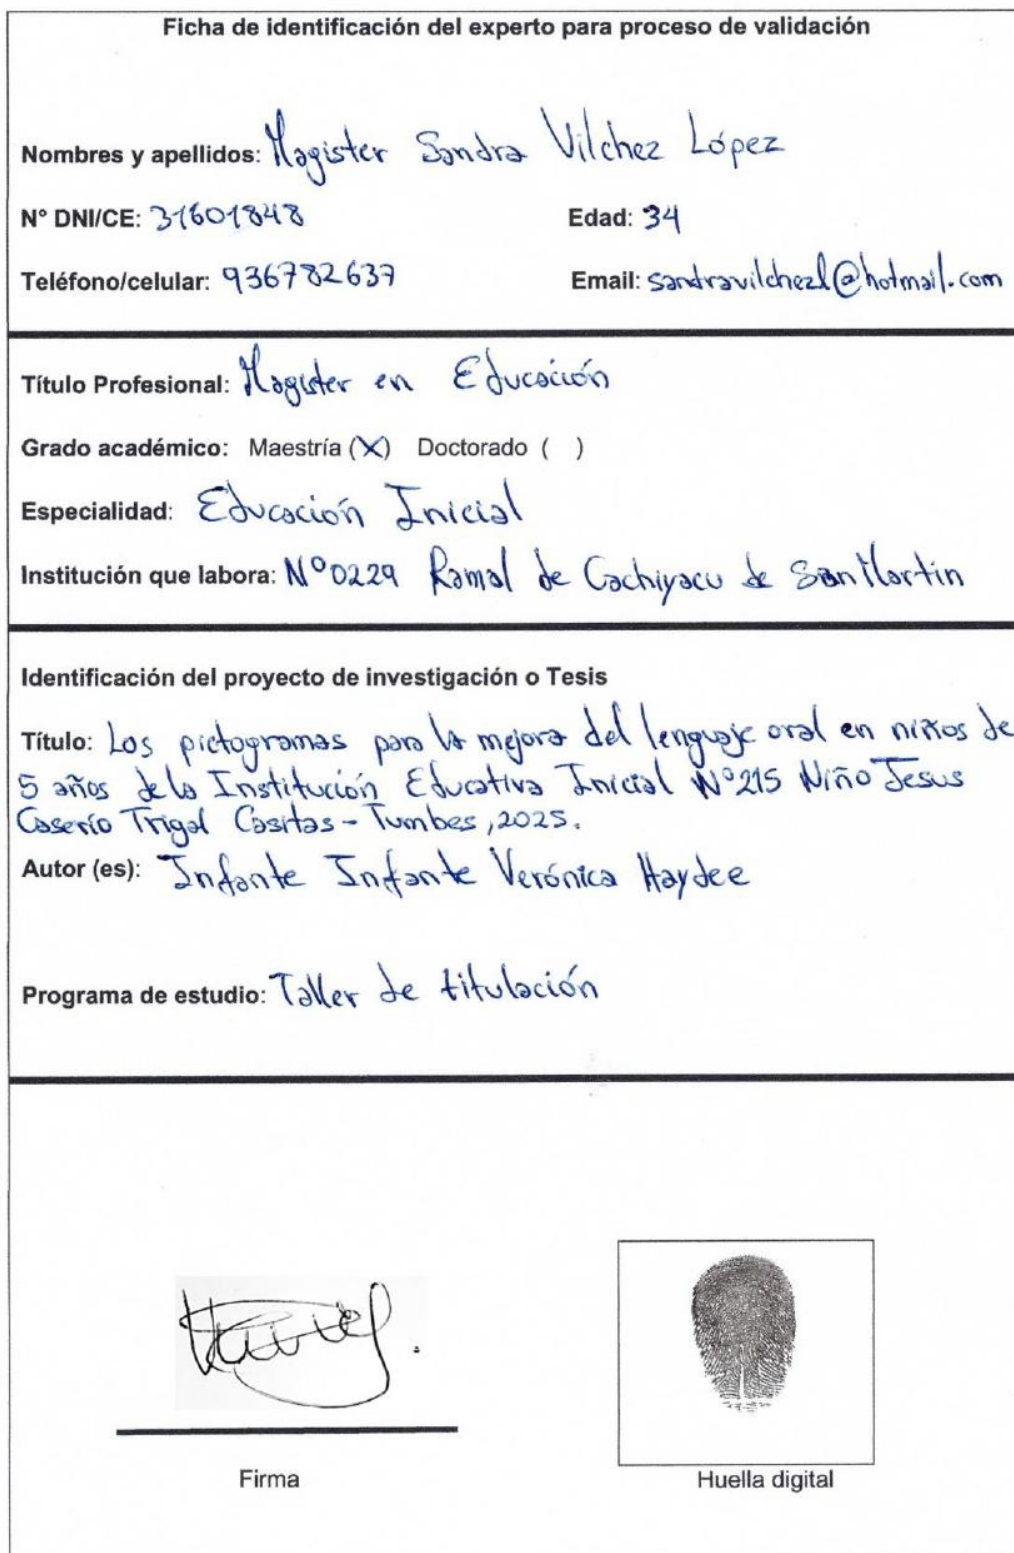 Ficha de identificación del experto para proceso de validación
Nombres y apellidos: Magister Sandra Vilchez López
N° DNI/CE: 31601848 Edad: 34
Teléfono/celular: 936782637 Email: sandravilchezl@hotmail.com
Título Profesional: Magister en Educación
Grado académico: Maestría (X) Doctorado ( )
Especialidad: Educación Inicial
Institución que labora: N°0229 Ramal de Cachiyacu de San Martin
Identificación del proyecto de investigación o Tesis
Título: Los pictogramas para la mejora del lenguaje oral en niños de
5 años de la Institución Educativa Inicial N°215 Niño Jesus
Caserío Trigal Casitas - Tumbes, 2025.
Autor (es): Infante Infante Verónica Haydee
Programa de estudio: Taller de titulación
Firma Huella digital